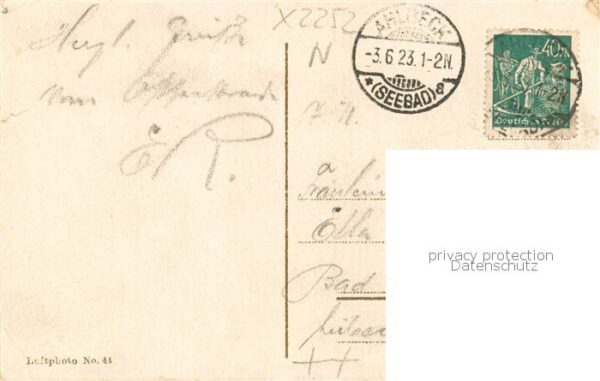 X2252
N
Herzl. Grüße
vom Ostseestrande
ER.
AHLBECK
-3.6.23.1-2N.
*(SEEBAD) a
40
Deutsches Reich
Fräulein
Ella
Bad
privacy protection
Datenschutz
Luftphoto No. 44